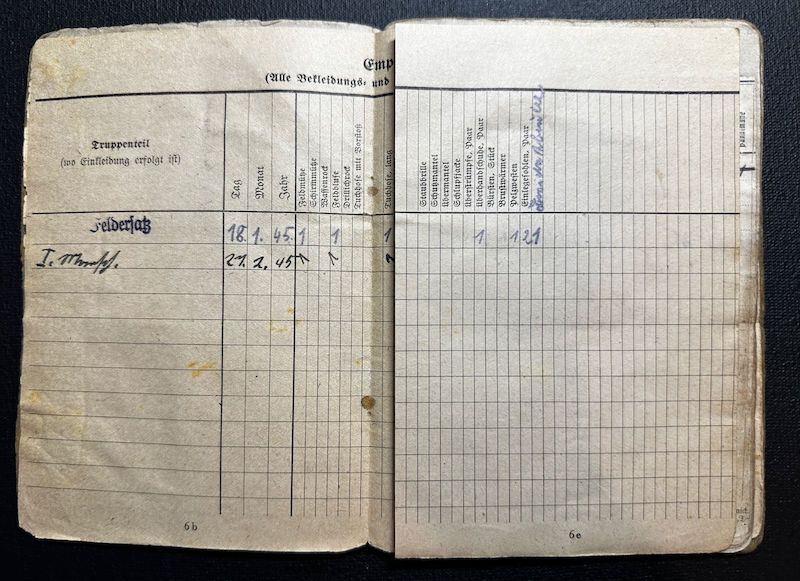 Emp
(Alle Bekleidungs- und
Truppenteil
(wo Einkleidung erfolgt ist)
Tag
Monat
Jahr
Feldmütze
Schirmmütze
Waffenrock
Feldbluse
Drillichrock
Tuchhose mit Vorstoß
Tuchhose, lang
Staubbrille
Schutzmantel
Übermantel
Schlupfjacke
Überstrümpfe, Paar
Überhandschuhe, Paar
Bürsten, Stück
Brustwärmer
Pelzwesten
Einlegesohlen, Paar
Feldersatz 18. 1. 45. 1 1 1 1 1 2 1
I. 27. 2. 45 1 1 1
6b
6e